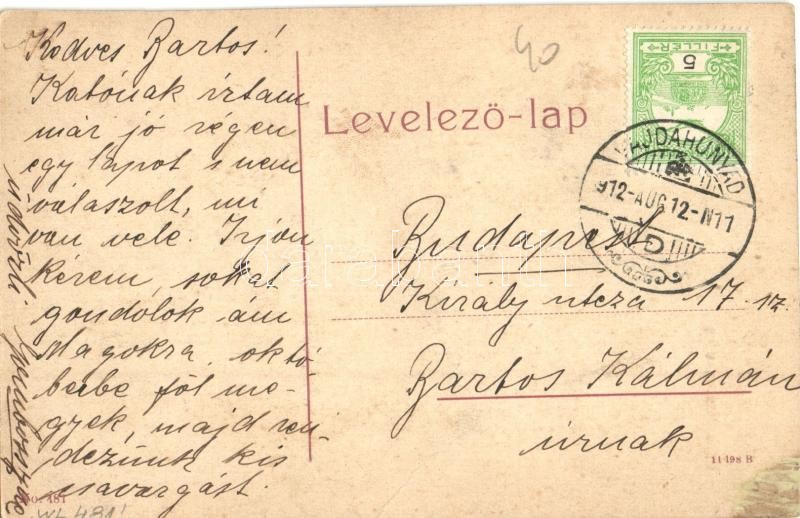 Kedves Bartos!
Katónak írtam
már jó régen
egy lapot s nem
válaszolt, mi
van vele. Írjon
kérem, sokat
gondolok ám
Magokra, októ
berbe föl me-
gyek, majd ren
dezünk kis
csavargást.
üdvözli
40
Levelezö-lap
5
FILLÉR
VAJDAHUNYAD
912-AUG 12-N11
G
Budapest
Király utcza 17. sz.
Bartos Kálmán
úrnak
11498 B
No. 481
WL 481
darabanth